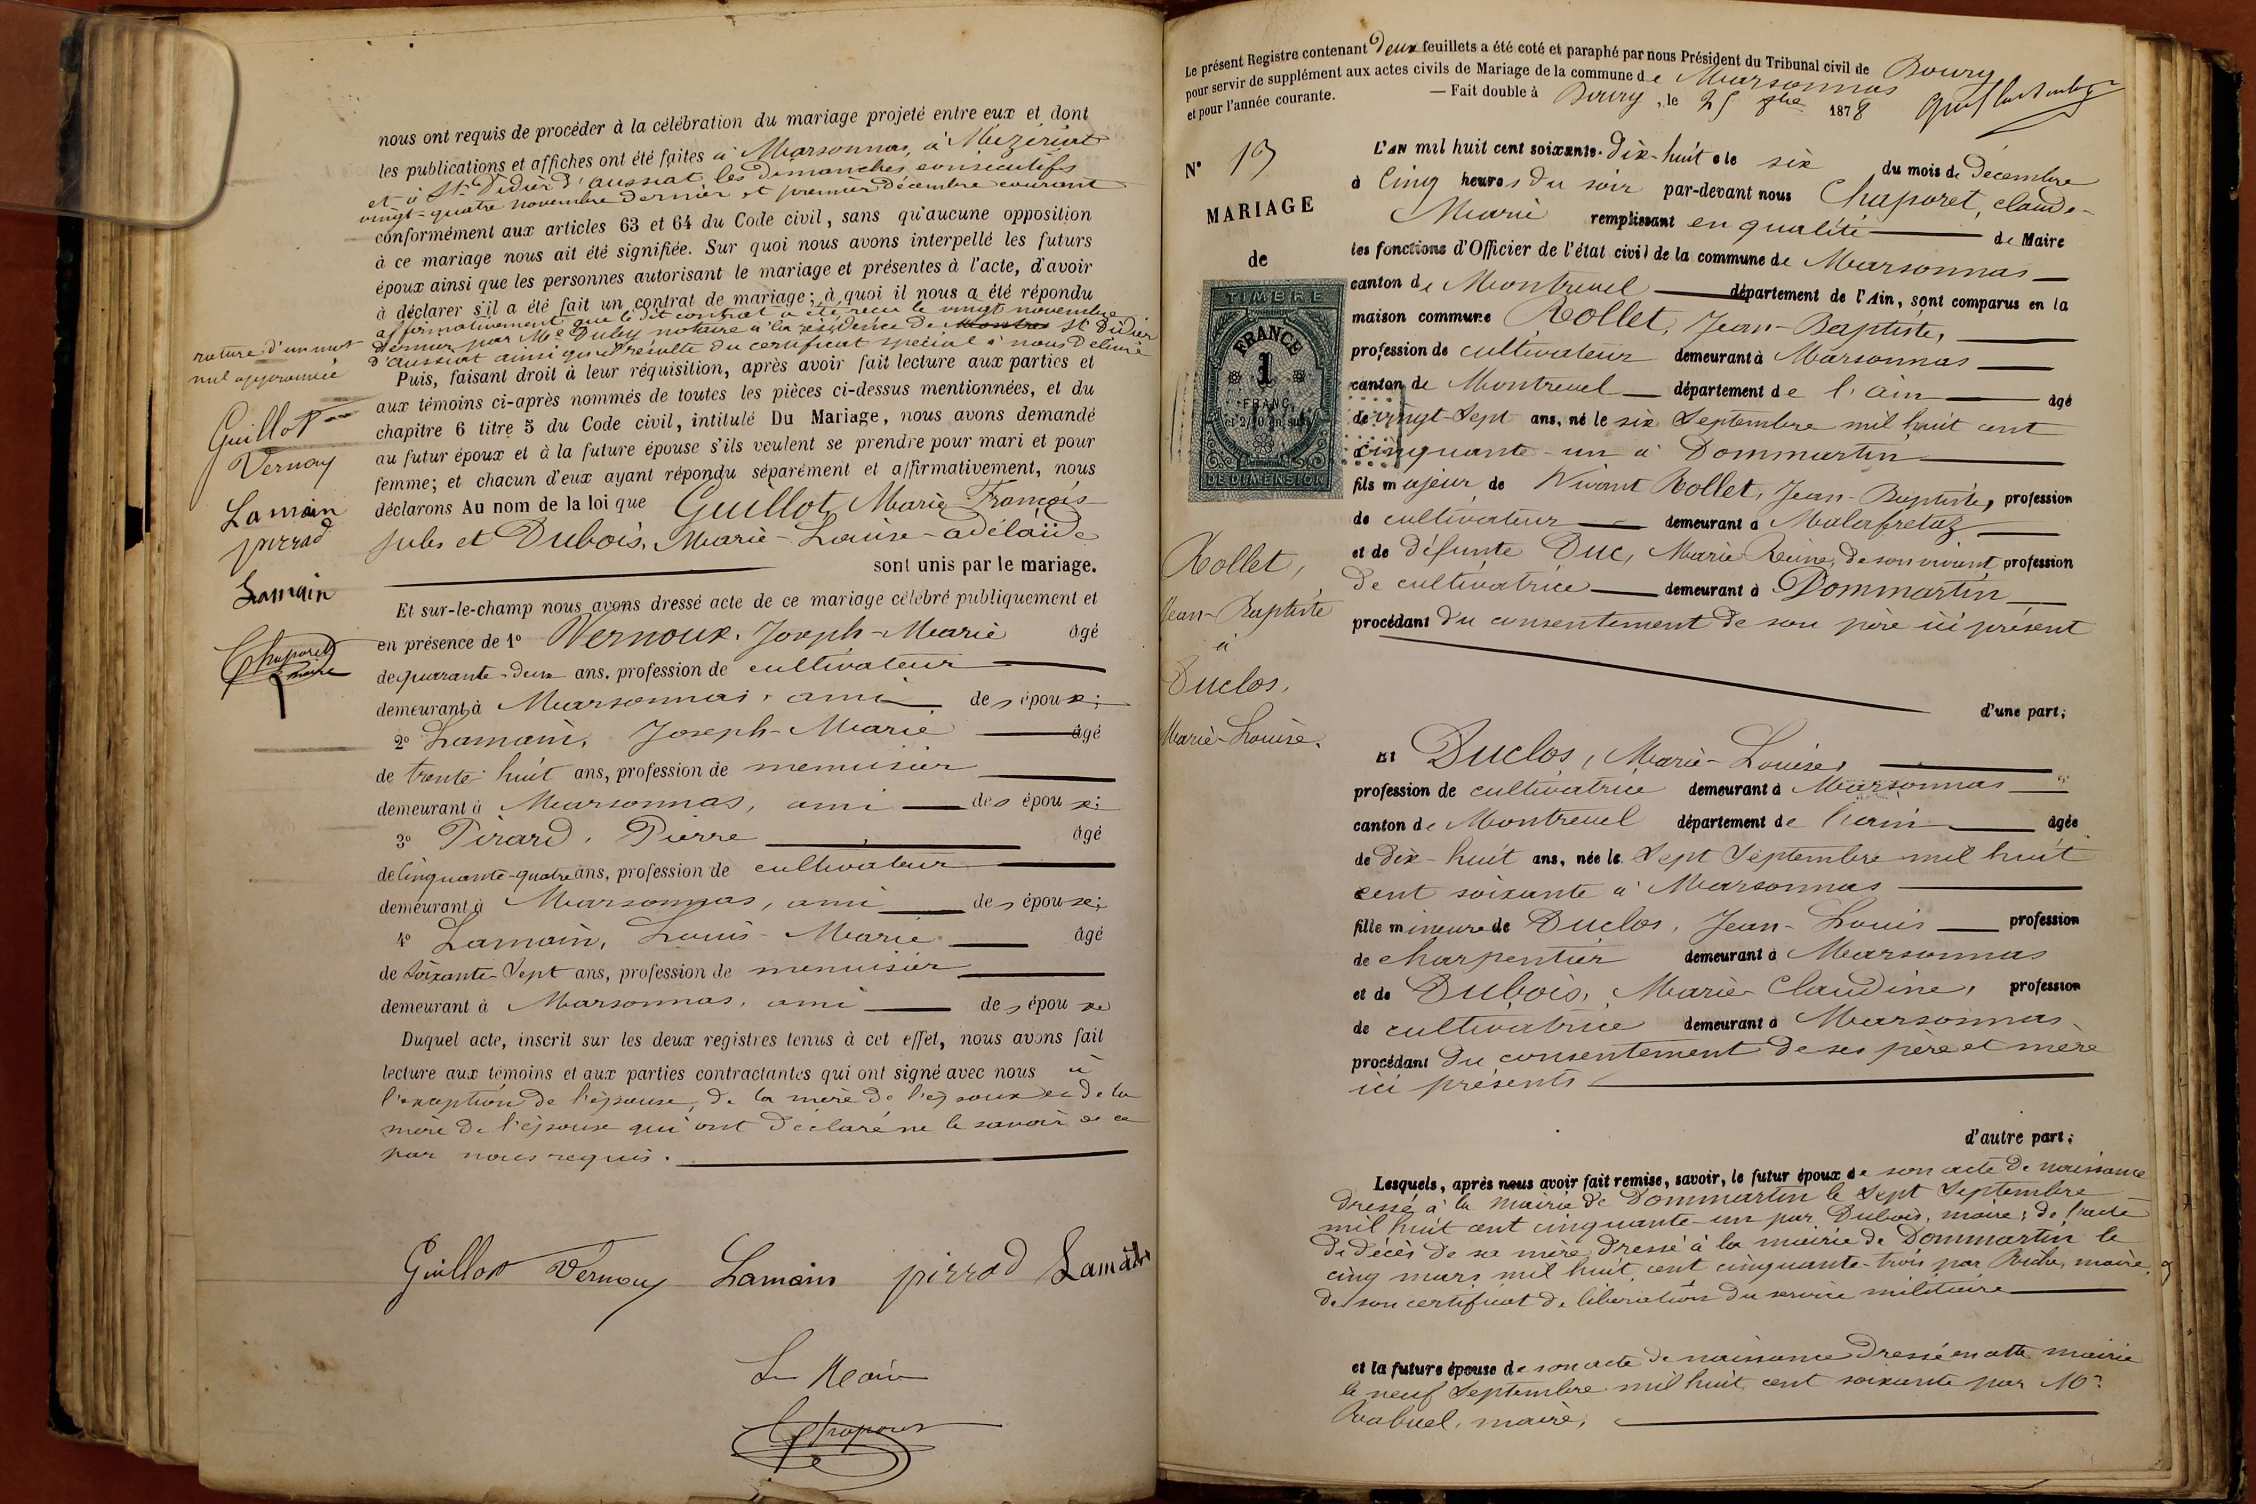 nous ont requis de procéder à la célébration du mariage projeté entre eux et dont
les publications et affiches ont été faites à Marsonnas, à Mézériat
et à St Didier d'aussiat les dimanches consécutifs
vingt-quatre novembre dernier et premier décembre courant
conformément aux articles 63 et 64 du Code civil, sans qu'aucune opposition
à ce mariage nous ait été signifiée. Sur quoi nous avons interpellé les futurs
époux ainsi que les personnes autorisant le mariage et présentes à l'acte, d'avoir
à déclarer s'il a été fait un contrat de mariage; à quoi il nous a été répondu
affirmativement que le dit contrat a été reçu le vingt novembre
dernier par Me Puley notaire à la résidence de St Didier
d'aussiat ainsi qu'il résulte du certificat spécial à nous délivré
rature d'un mot
nul approuvée
Puis, faisant droit à leur réquisition, après avoir fait lecture aux parties et
aux témoins ci-après nommés de toutes les pièces ci-dessus mentionnées, et du
chapitre 6 titre 5 du Code civil, intitulé Du Mariage, nous avons demandé
au futur époux et à la future épouse s'ils veulent se prendre pour mari et pour
femme; et chacun d'eux ayant répondu séparément et affirmativement, nous
déclarons Au nom de la loi que Guillot, Marie François
Jules et Dubois, Marie-Louise-adélaïde
sont unis par le mariage.
Guillot
Vernoy
Lamain
pirrad
Lamain
Chaporet
maire
Et sur-le-champ nous avons dressé acte de ce mariage célébré publiquement et
en présence de 1° Vernoux, Joseph-Marie âgé
de quarante-deux ans, profession de cultivateur
demeurant à Marsonnas, ami des époux;
2° Lamain, Joseph-Marie âgé
de trente huit ans, profession de menuisier
demeurant à Marsonnas, ami des époux;
3° Pirard, Pierre âgé
de Cinquante-quatre ans, profession de cultivateur
demeurant à Marsonnas, ami des époux;
4° Lamain, Louis-Marie âgé
de Soixante-Sept ans, profession de menuisier
demeurant à Marsonnas, ami des époux
Duquel acte, inscrit sur les deux registres tenus à cet effet, nous avons fait
lecture aux témoins et aux parties contractantes qui ont signé avec nous à
l'exception de l'épouse, de la mère de l'époux et de la
mère de l'épouse qui ont déclaré ne le savoir de ce
par nous requis.
Guillot Vernoy Lamain pirrad Lamain
Le Maire
Chaporet
Le présent Registre contenant Deux feuillets a été coté et paraphé par nous Président du Tribunal civil de Bourg
pour servir de supplément aux actes civils de Mariage de la commune de Marsonnas
et pour l'année courante. — Fait double à Bourg, le 25 9bre 1878
N° 19
MARIAGE
de
TIMBRE
FRANCE
1
FRANC
et 2/10 en sus
DE DIMENSION
Rollet,
Jean-Baptiste
à
Duclos,
Marie-Louise.
L'AN mil huit cent soixante-Dix-huit & le six du mois de Décembre
à Cinq heures du soir par-devant nous Chaporet, claude-
Marie remplissant en qualité de Maire
les fonctions d'Officier de l'état civil de la commune de Marsonnas
canton de Montrevel département de l'Ain, sont comparus en la
maison commune Rollet, Jean-Baptiste,
profession de cultivateur demeurant à Marsonnas
canton de Montrevel département de l'ain âgé
de vingt-Sept ans, né le six Septembre mil huit cent
cinquante-un à Dommartin
fils majeur de Vivant Rollet, Jean-Baptiste, profession
de cultivateur demeurant à Malafretaz
et de défunte Duc, Marie Reine, de son vivant profession
de cultivatrice demeurant à Dommartin
procédant du consentement de son père ici présent
d'une part;
Et Duclos, Marie-Louise,
profession de cultivatrice demeurant à Marsonnas
canton de Montrevel département de l'ain âgée
de Dix-huit ans, née le Sept Septembre mil huit
cent soixante à Marsonnas
fille mineure de Duclos, Jean-Louis profession
de charpentier demeurant à Marsonnas
et de Dubois, Marie-Claudine, profession
de cultivatrice demeurant à Marsonnas
procédant du consentement de ses père et mère
ici présents
d'autre part;
Lesquels, après nous avoir fait remise, savoir, le futur époux de son acte de naissance
dressé à la Mairie de Dommartin le Sept Septembre
mil huit cent cinquante-un par Dubois, maire; de l'acte
de décès de sa mère dressé à la mairie de Dommartin le
cinq mars mil huit cent cinquante-trois par maire,
de son certificat de libération du service militaire
et la future épouse de son acte de naissance dressé en cette mairie
le neuf Septembre mil huit cent soixante par Mr
Rabuel, maire;